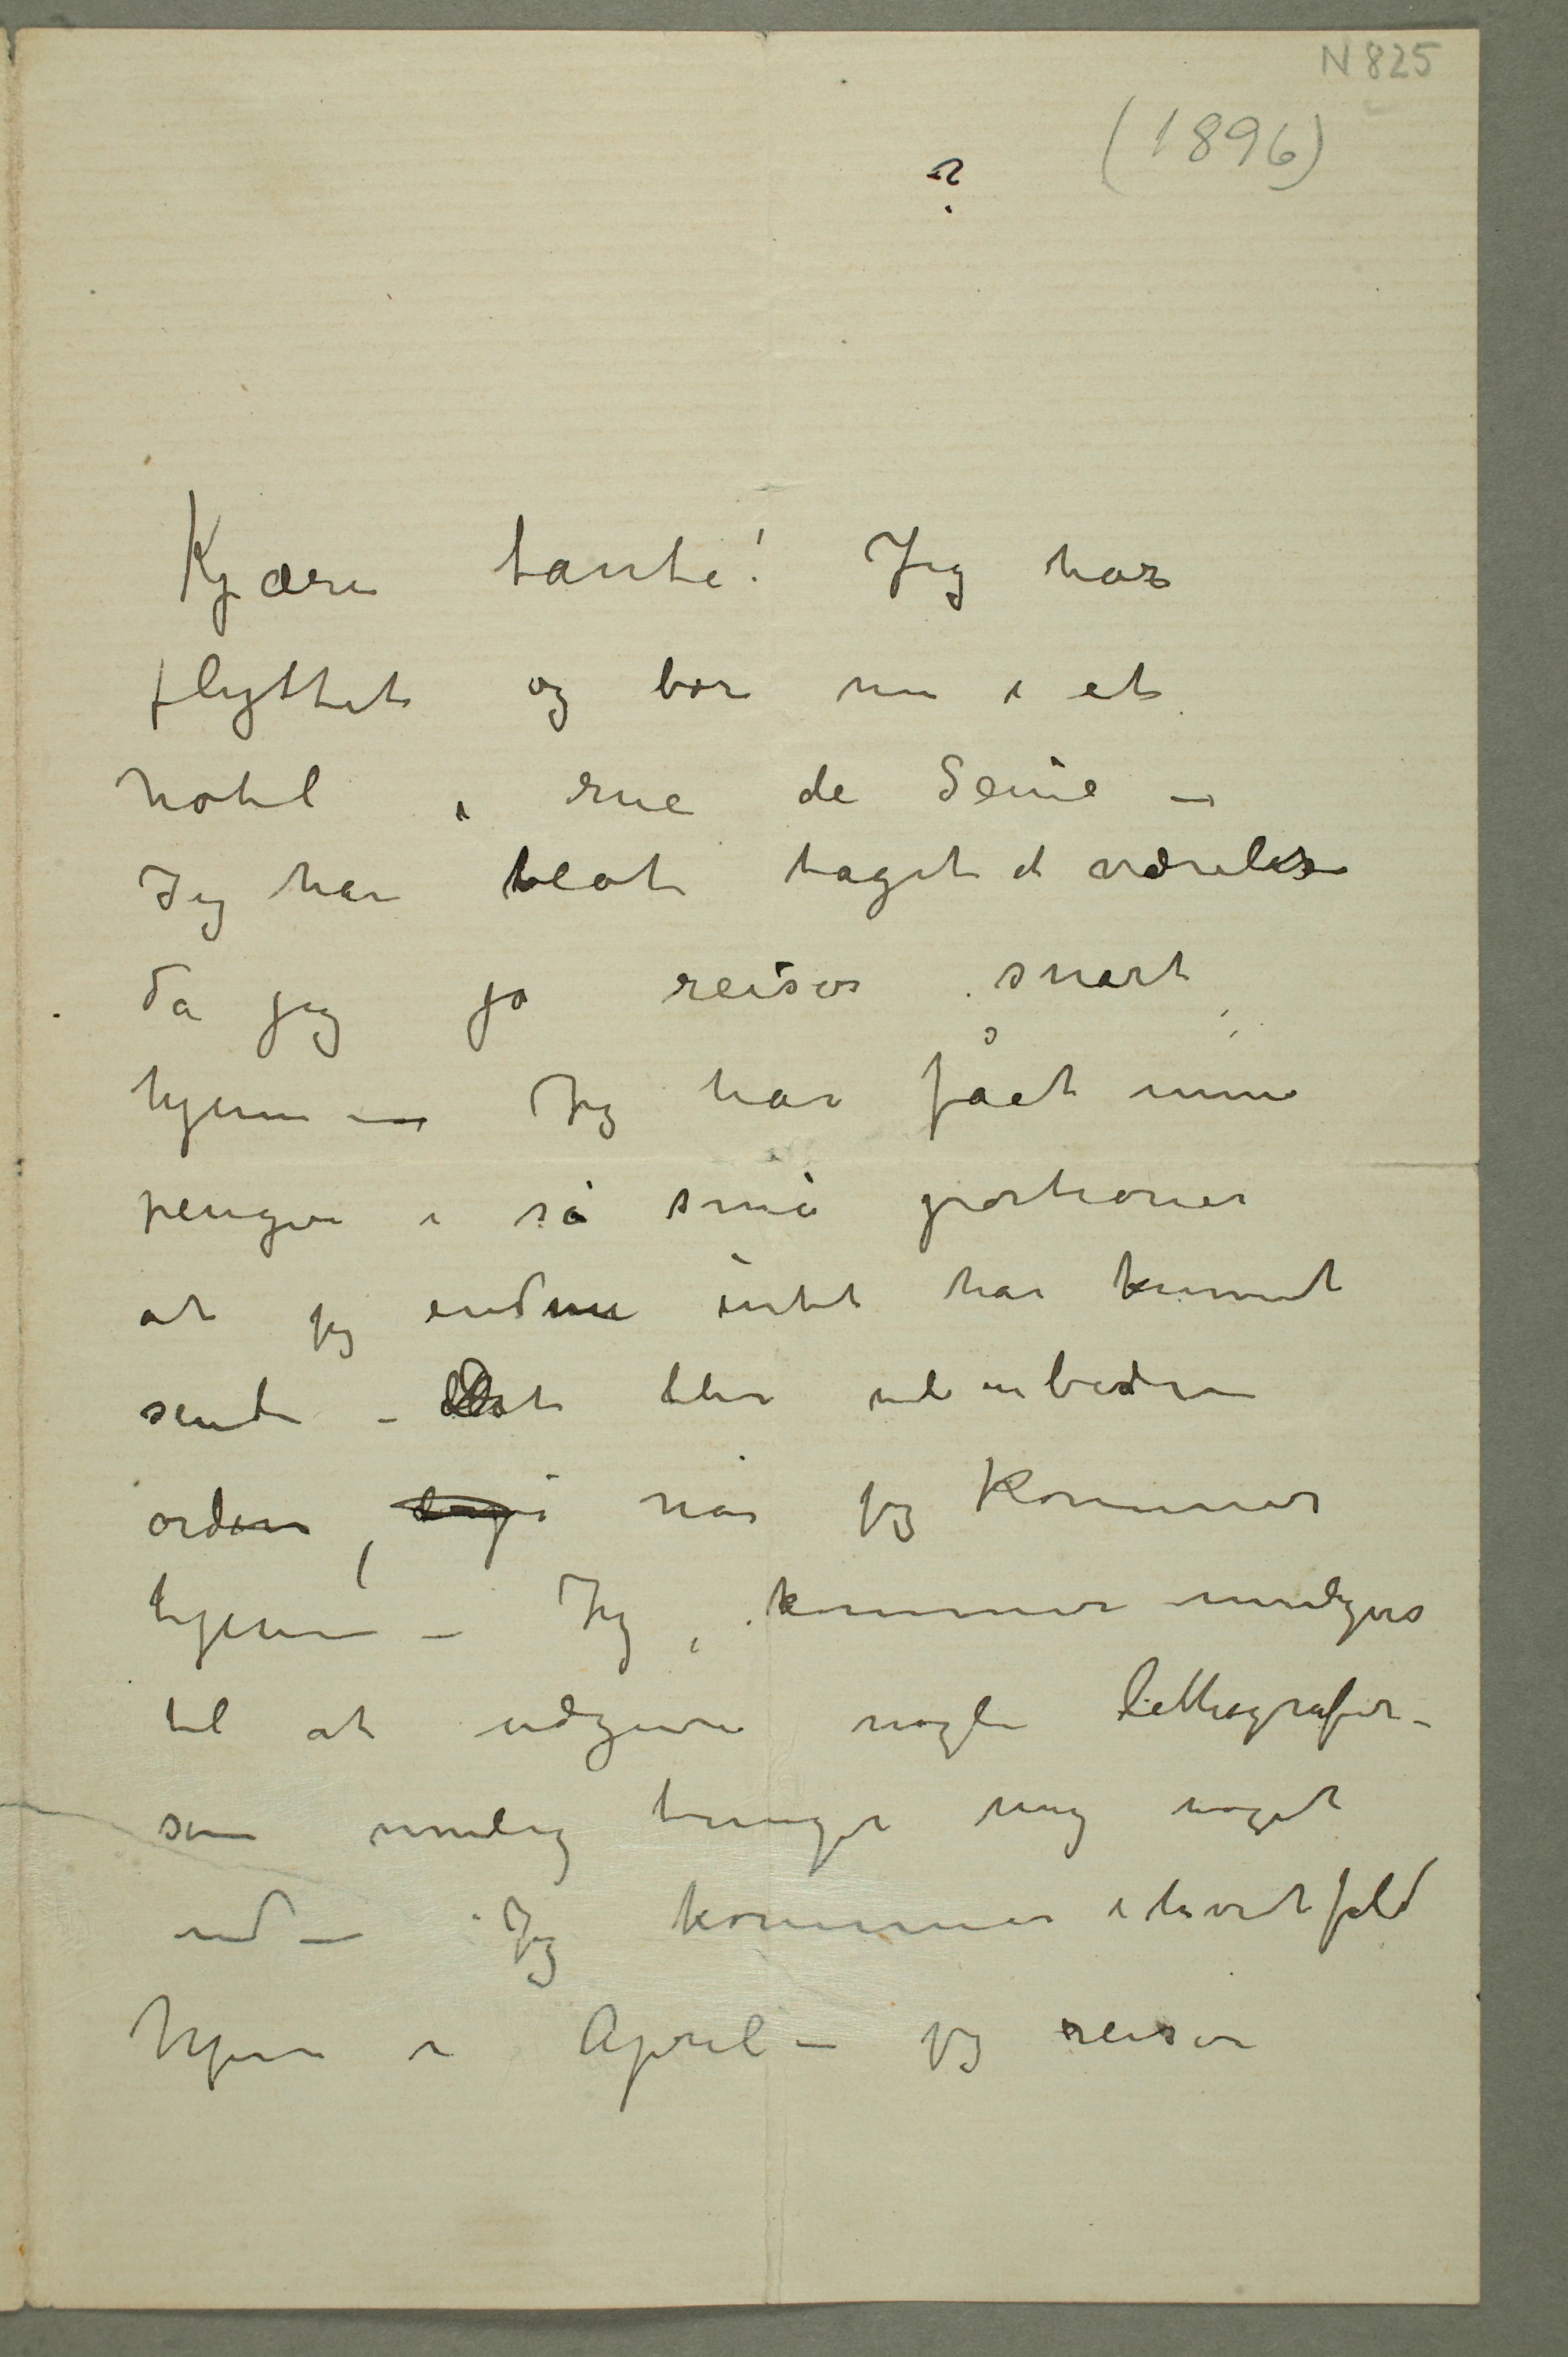 N 825
(1896)
?
Kjære tante! Jeg har
flyttet og bor nu i et
hotel i rue de Seine –
Jeg har blot taget et værelse
da jeg jo reiser snart
hjem – Jeg har fået mine
penge i så små portioner
at jeg endnu intet har kunnet
sende – Det blir nok en bedre
orden, når jeg kommer
hjem – Jeg kommer muligens
til at udgive nogle lithografier –
som mulig bringer mig noget
ind – Jeg kommer i hvert fald
hjem i April – jeg reiser